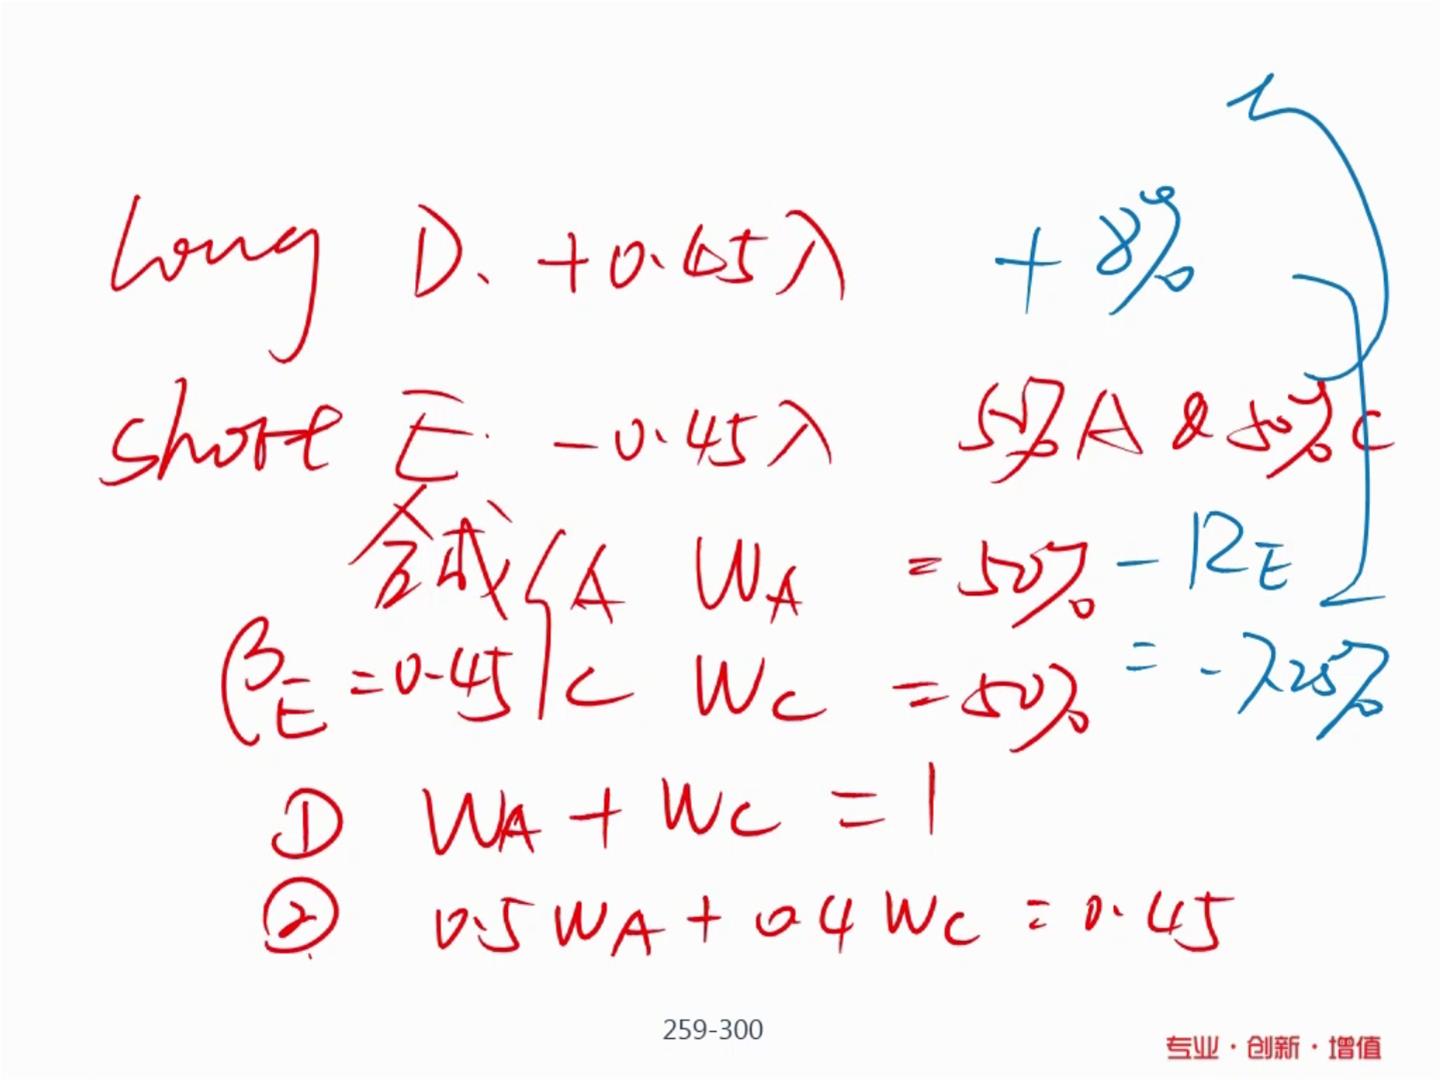 Long D. +0.45λ +8%
Short E. -0.45λ 50% A & 50% C
合成 { A W_A = 50% - R_E
β_E = 0.45 C W_C = 50% = -7.25%
① W_A + W_C = 1
② 0.5 W_A + 0.4 W_C = 0.45
259-300
专业·创新·增值